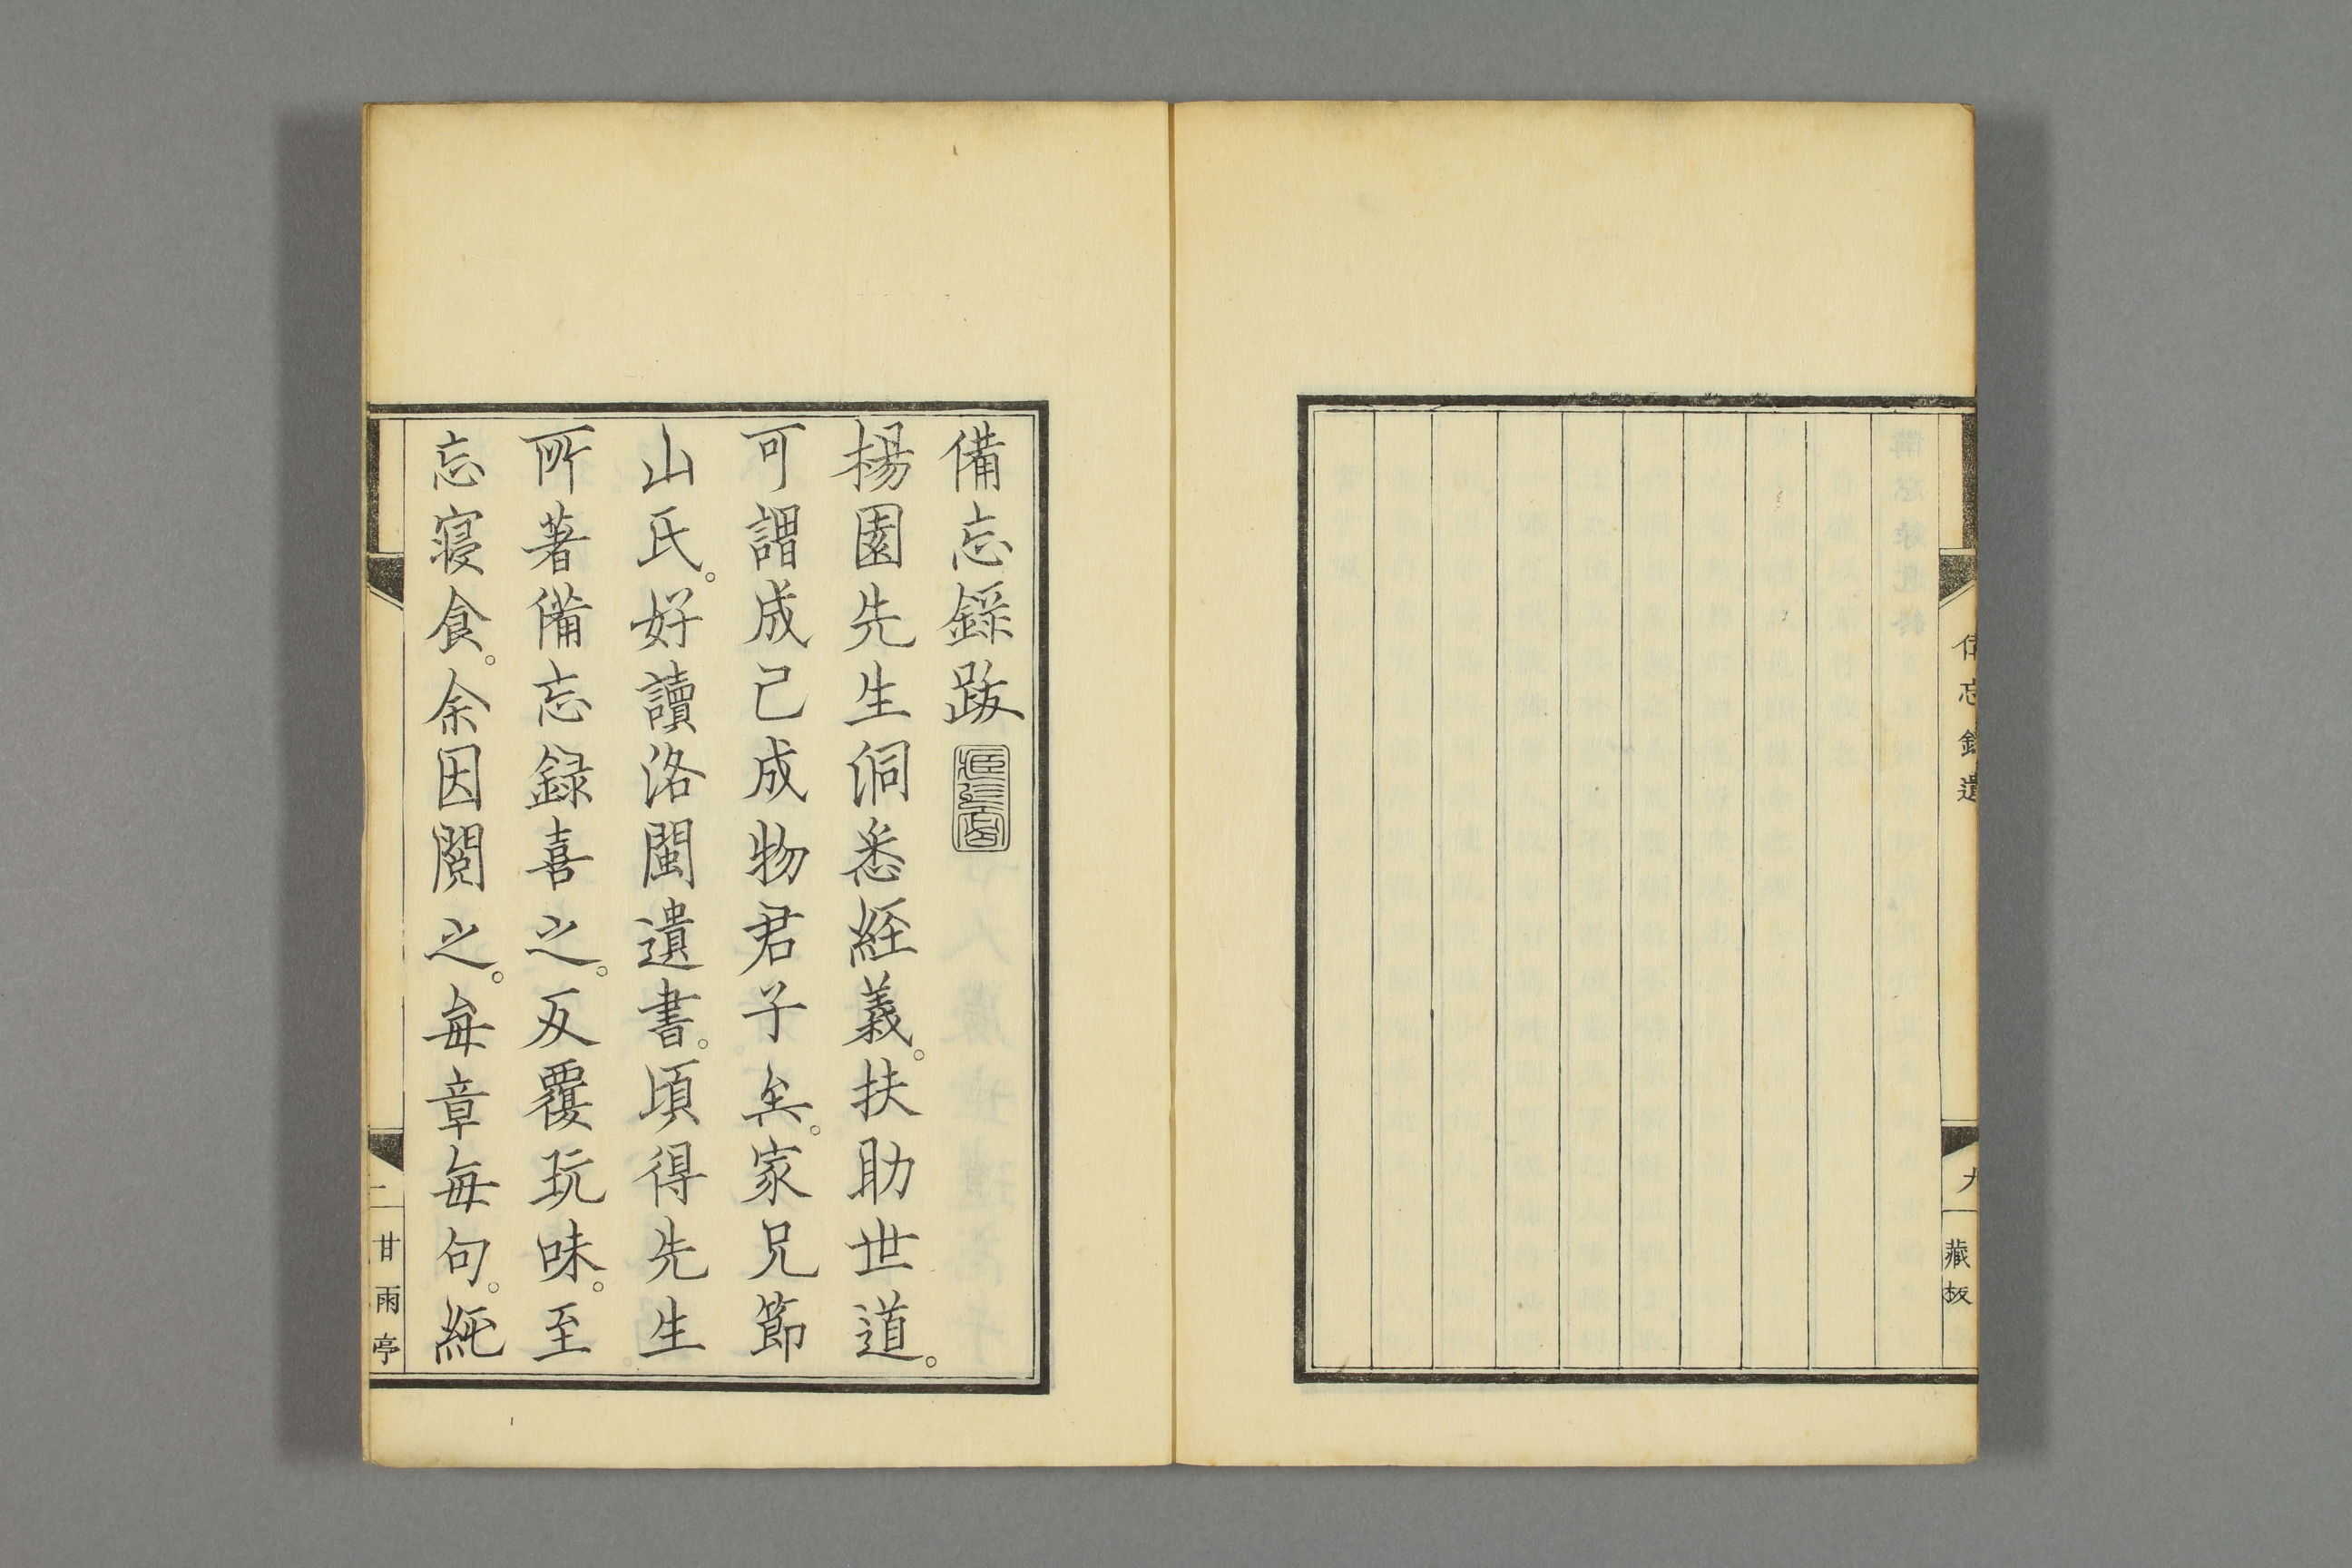 備忘錄遺
九
藏板
備忘錄跋
楊園先生洞悉經義。扶助世道。
可謂成己成物君子矣。家兄節
山氏。好讀洛閩遺書。頃得先生
所著備忘録喜之。反覆玩味。至
忘寝食。余因閲之。每章每句。純
一
甘雨亭